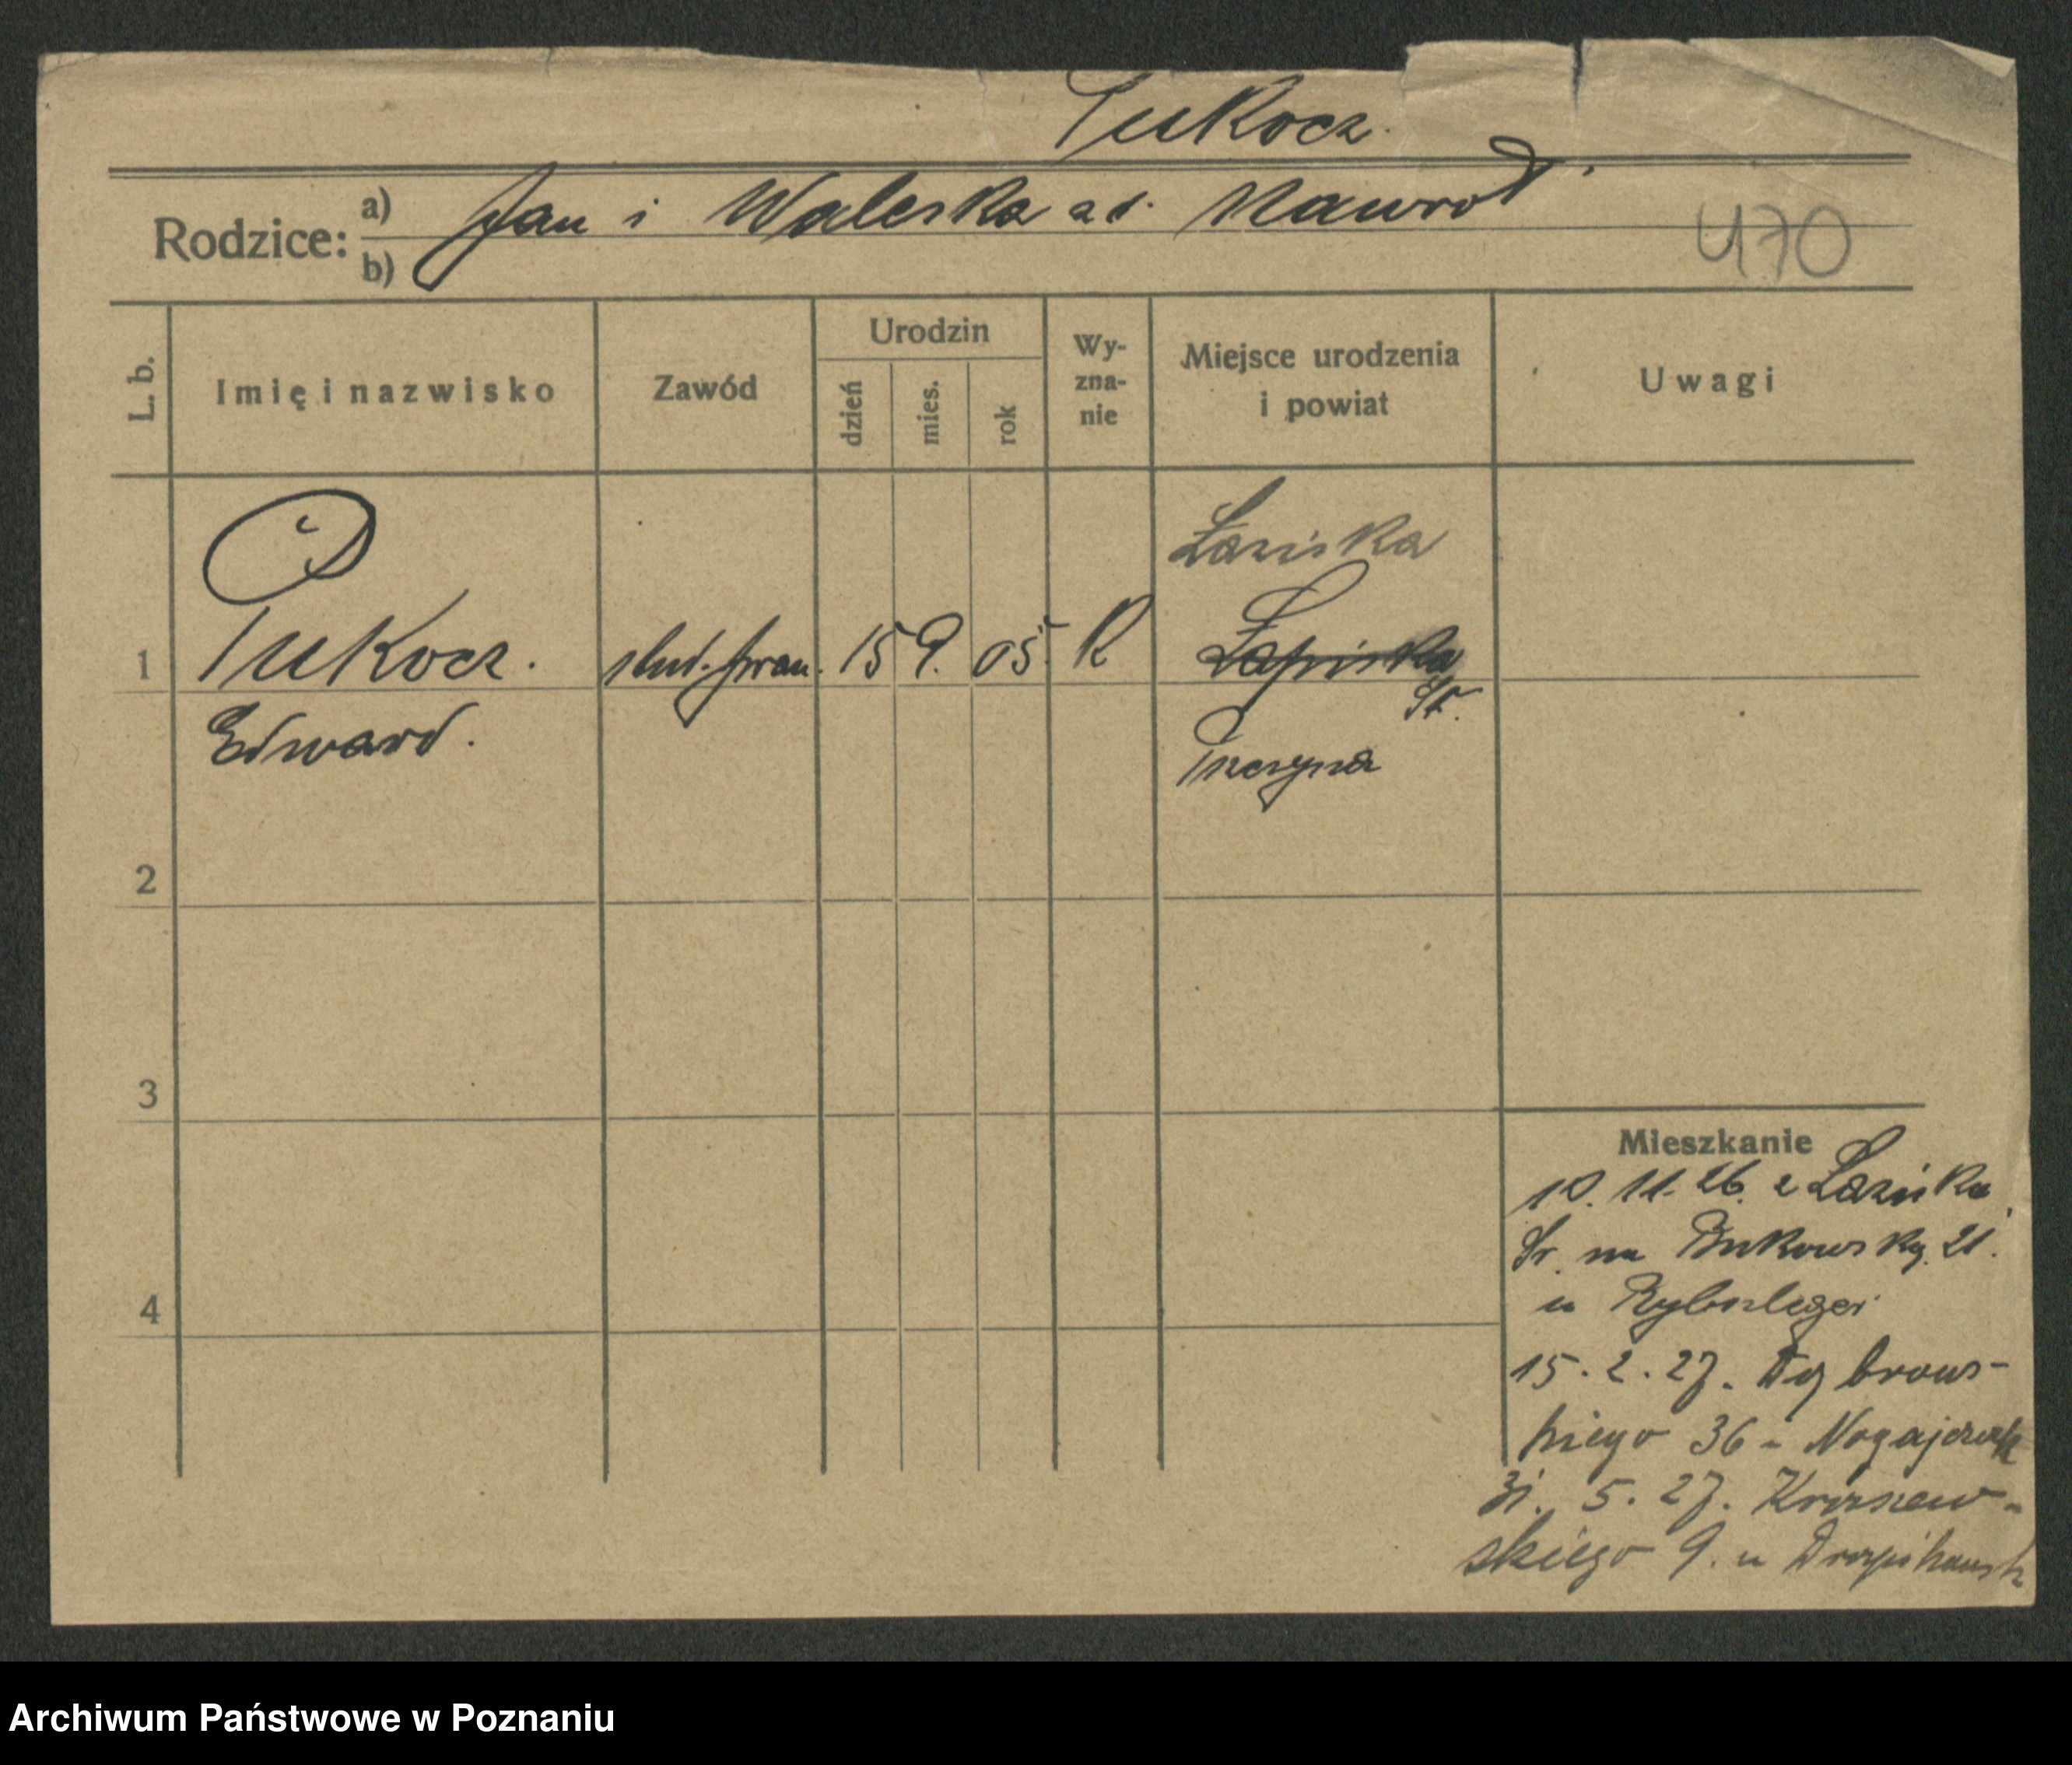 Pukocz.
Rodzice: a) Jan i Waleska zd. Nawrot
b)
470
L. b.
Imię i nazwisko
Zawód
Urodzin
dzień
mies.
rok
Wy-
zna-
nie
Miejsce urodzenia
i powiat
Uwagi
Łaziska
1 Pukocz. stud. praw. 15 9. 05. R Łapiska
Śr.
Edward. Pszczyna
2
3
Mieszkanie
10. 11. 26. z Łaziska
Śr. na Bukowską 21.
u
4
15. 2. 27. Dąbrows-
kiego 36 - Nogajczyk
31. 5. 27. Kraszew-
skiego 9. u
Archiwum Państwowe w Poznaniu